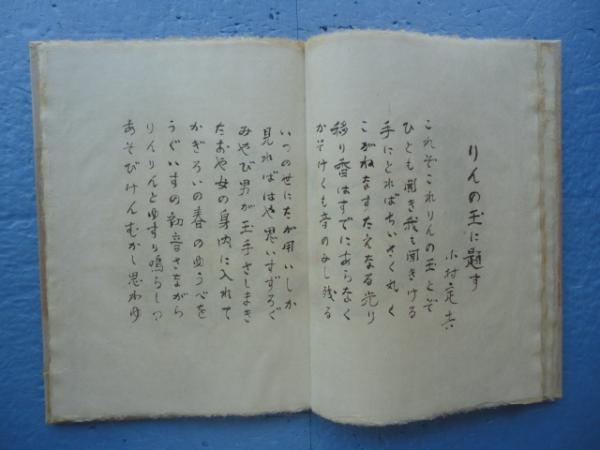 りんの玉に題す
小村定吉
これぞこれりんの玉とぞ
ひとも聞き我も聞きける
手にとればちいさく丸く
こがねなすたえなる光り
移り香はすでにあらなく
かそけくも音のみし残る
いつの世にたが用いしか
見ればはや思いすずろぐ
みやび男が玉手さしまき
たおや女の身内に入れて
かぎろいの春のゆうべを
うぐいすの初音さながら
りんりんとゆすり鳴らしつつ
あそびけんむかし思おゆ